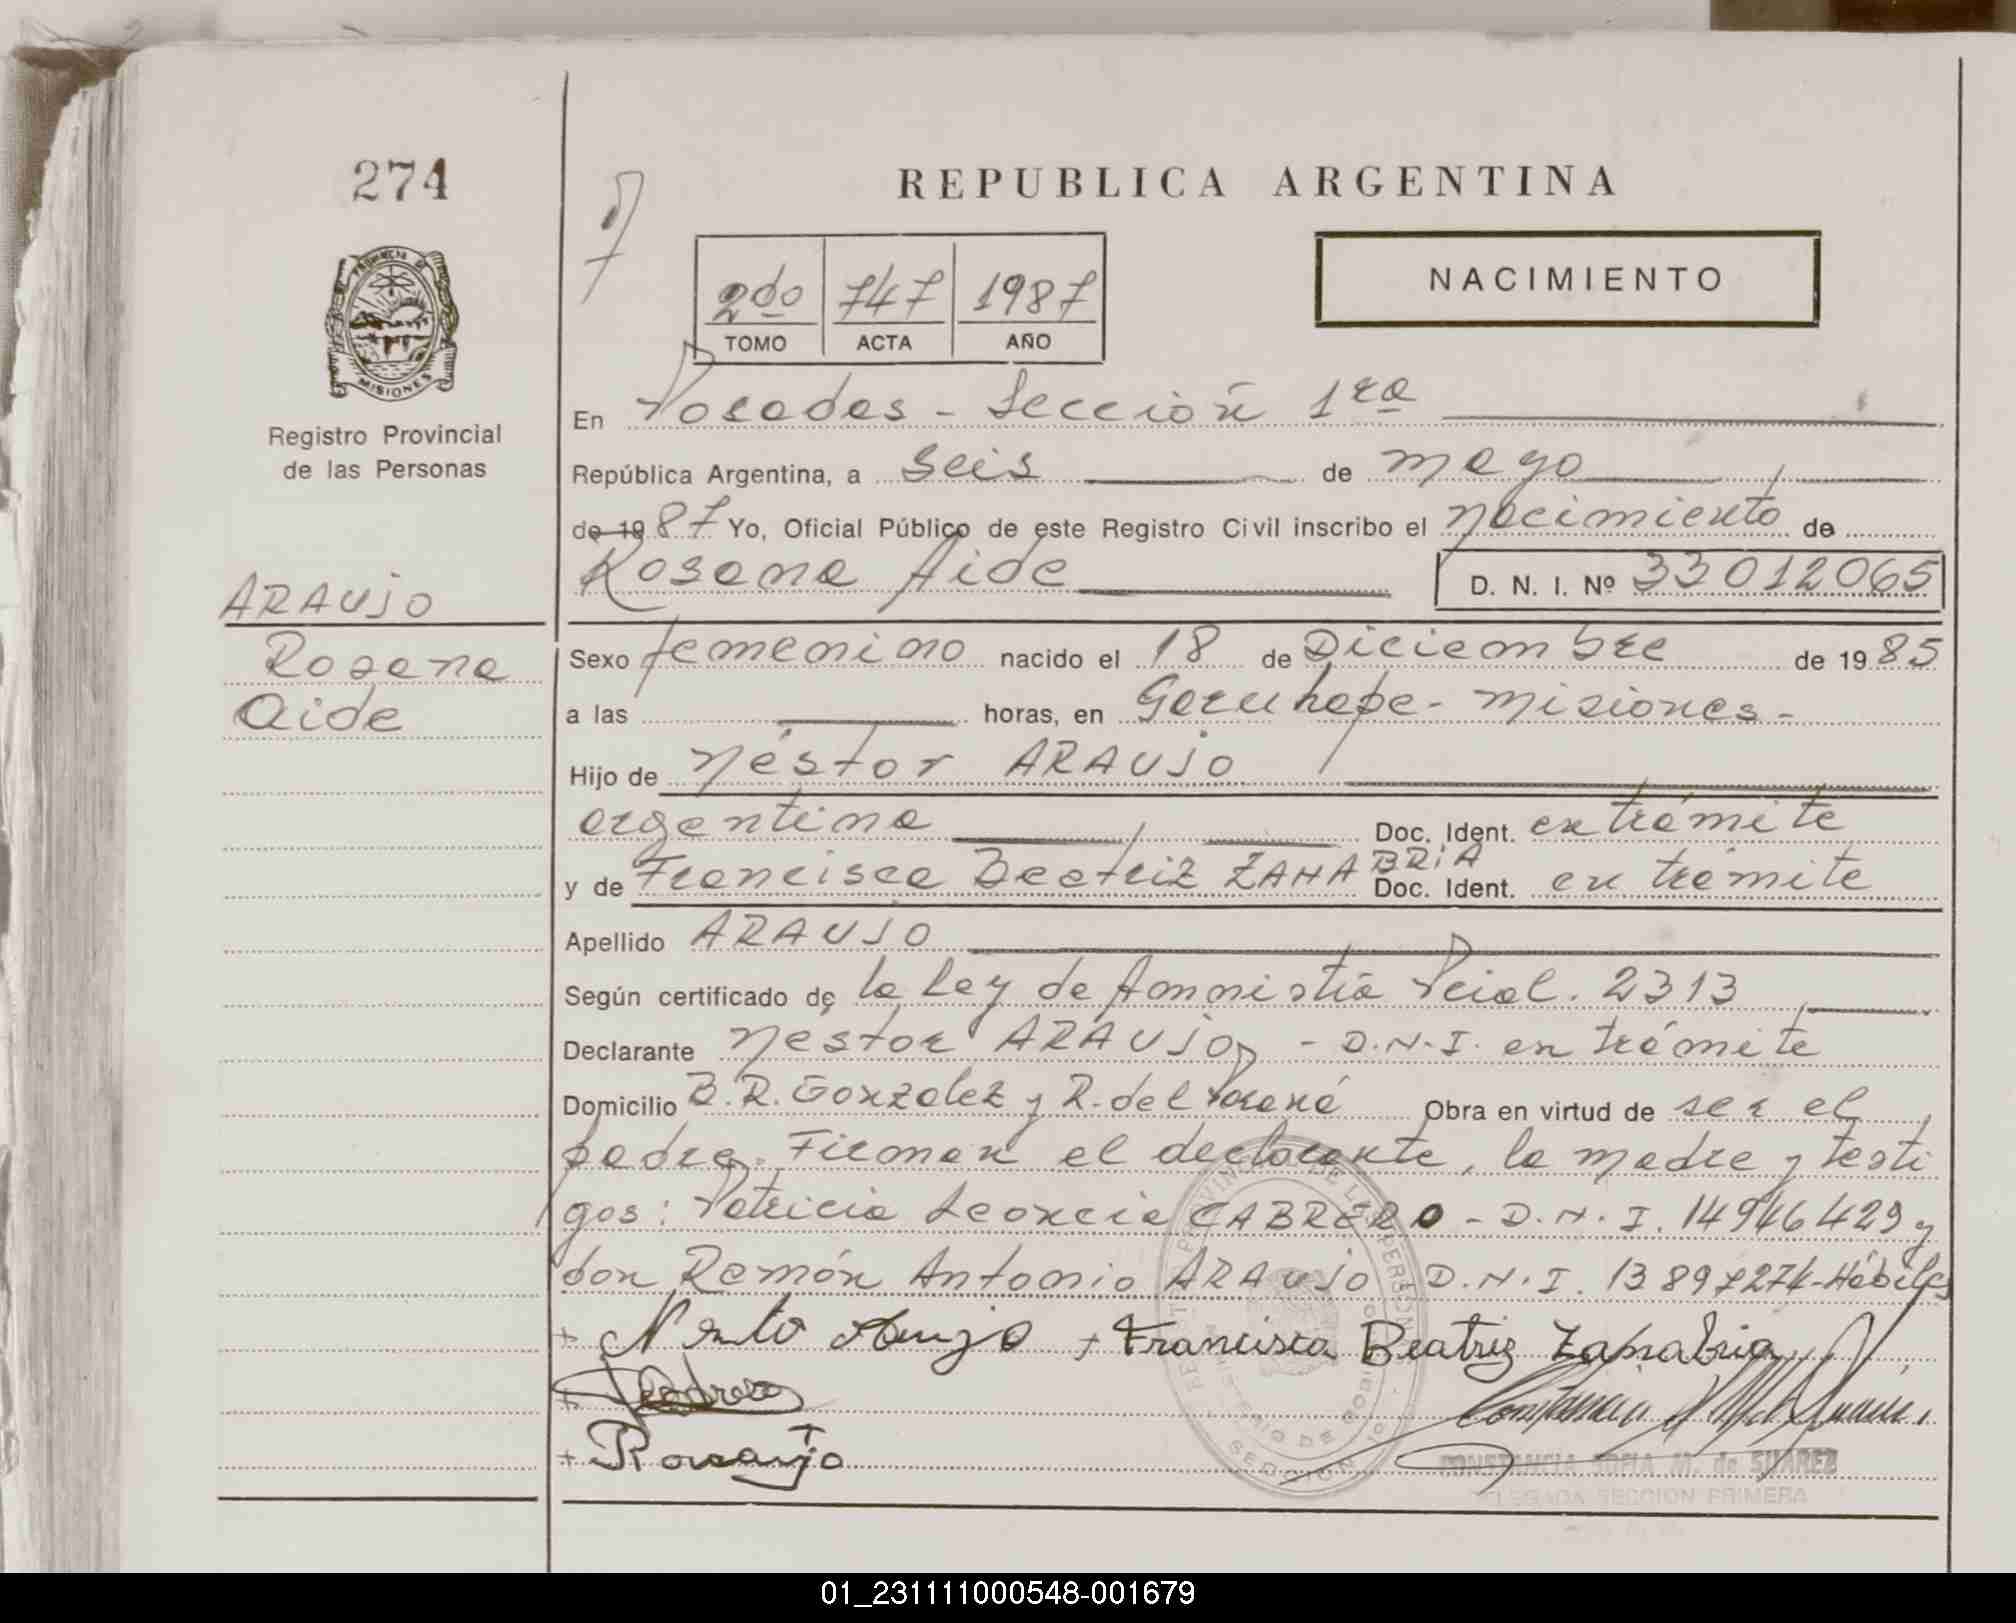 274
REPUBLICA ARGENTINA
2do 747 1987
TOMO ACTA AÑO
NACIMIENTO
PROVINCIA DE
MISIONES
Registro Provincial
de las Personas
ARAUJO
Rosana
Aide
En Posadas - Sección 1ra
República Argentina, a seis de mayo
de 1987 Yo, Oficial Público de este Registro Civil inscribo el nacimiento de
Rosana Aide D. N. I. Nº 33012065
Sexo femenino nacido el 18 de Diciembre de 1985
a las horas, en Garuhape - Misiones -
Hijo de Néstor ARAUJO
argentina Doc. Ident. en trámite
y de Francisca Beatriz ZANABRIA Doc. Ident. en trámite
Apellido ARAUJO
Según certificado de la Ley de Amnistía Pcial. 2313
Declarante Néstor ARAUJO - D.N.I. en trámite
Domicilio B.R. Gonzalez y R. del Paraná Obra en virtud de ser el
padre. Firman el declarante, la madre y testi
gos: Patricia Leoncia CABRERO - D.N.I. 14946429 y
don Ramón Antonio ARAUJO D.N.I. 13897274 - Hábiles
+ Araujo + Francisca Beatriz Zanabria
+
+ Rₐraujo
CONSTANCIA SOFIA M. de SUAREZ
DELEGADA SECCION PRIMERA
01_231111000548-001679